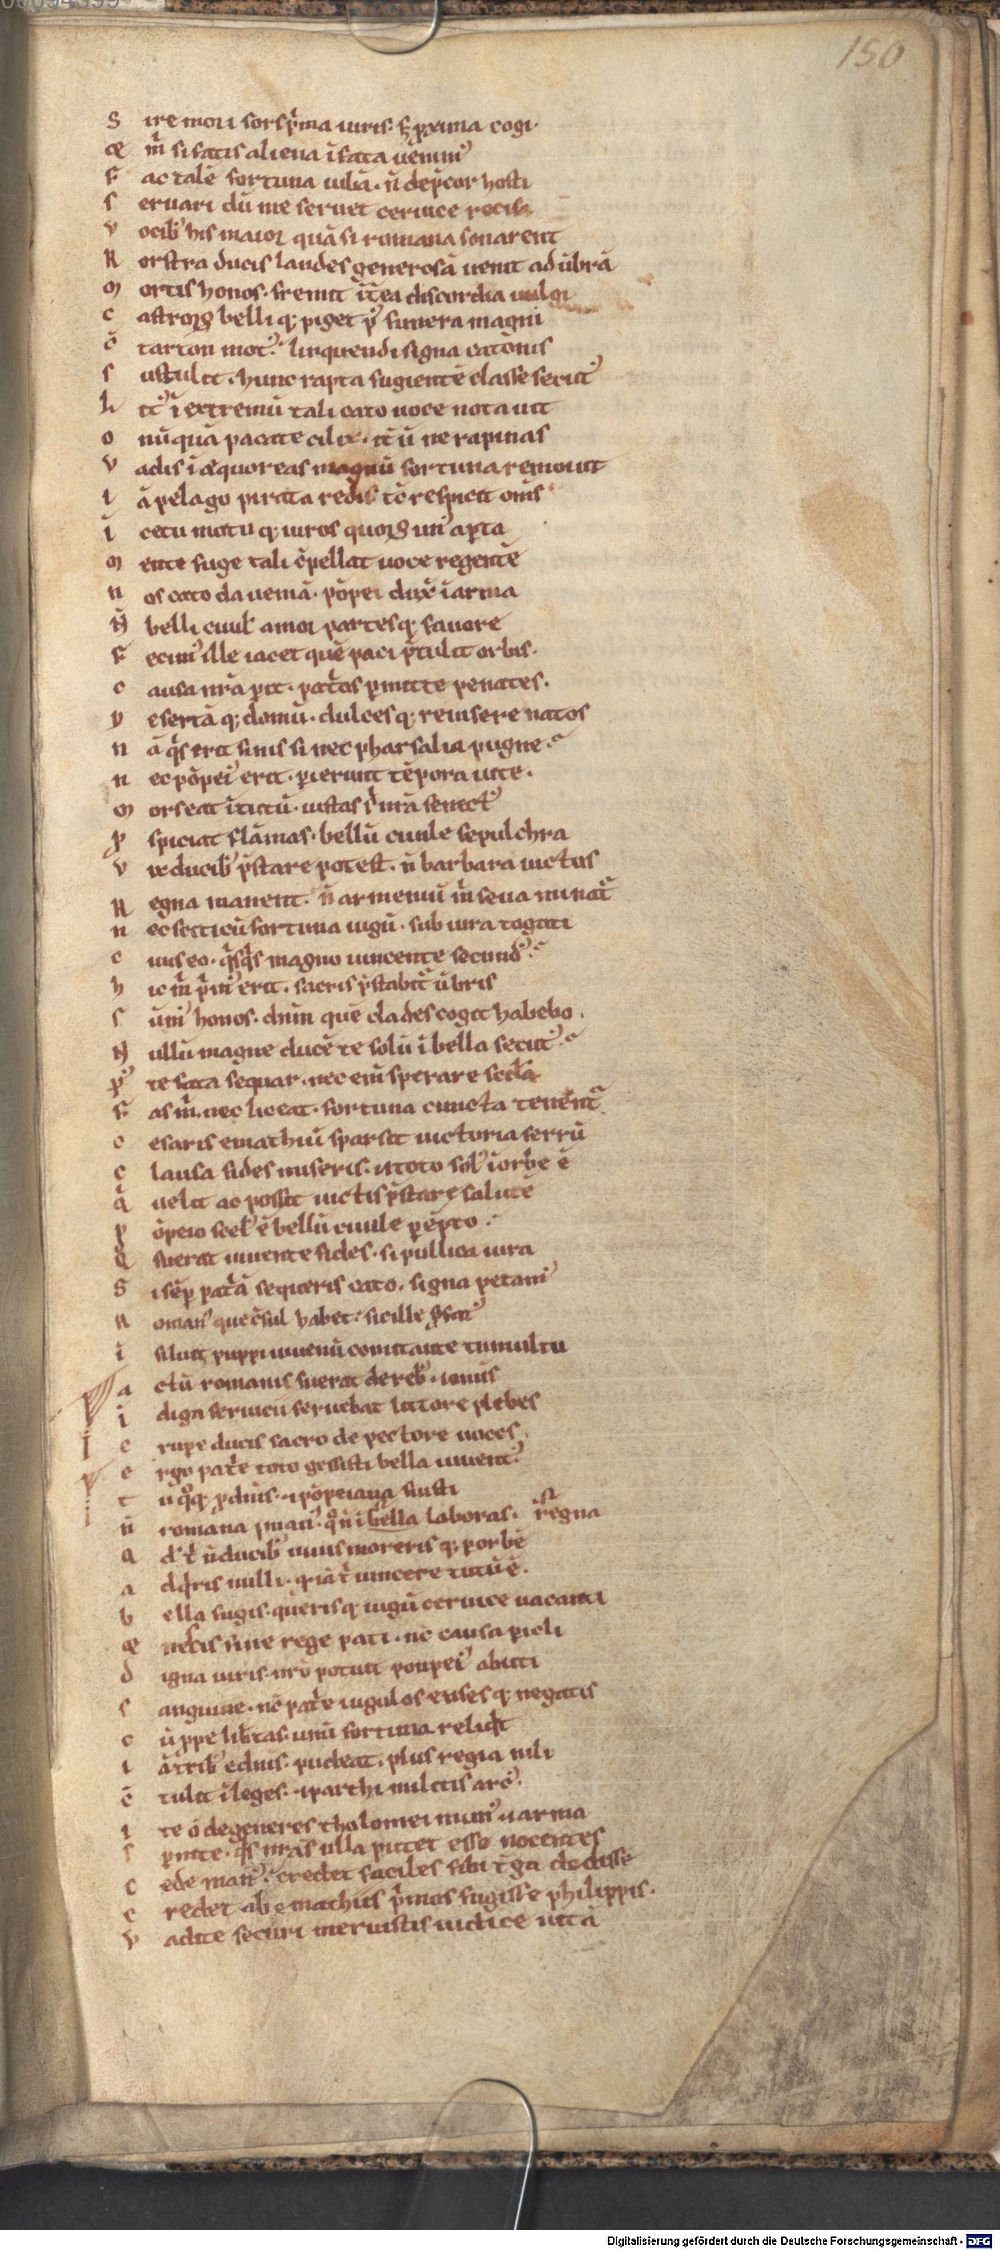 150
S ire mori sors p̄ma uiris. s; p̄xima cogi.
æ m̄ si fatis aliena ī fata uenim᾽
F ac talē fortuna iubā. n̄ dep̄cor hosti
S eruari dū me seruet ceruice recisa
V ocib᾽ his maior quā si romana sonarent
R ostra ducis laudes generosā uenit ad ūbrā
M ortis honos. fremit īt̄ea discordia uulgi
C astroꝝ belli q; piget p᷒ funera magni
C̄ tarton mot᷒. linquendi signa catonis
S ustulit. hunc rapta fugientē classe secut᷒
L itt᷒ ī extremū tali cato uoce notauit
O nūquā pacate cilix. it̄ū ne rapinas
V adis ī æquoreas magnū fortuna remouit
I ā pelago pirata redis tc̄ respicit om̄s
I cetu motu q; uiros quoꝝ un᷒ apta
M ente fuge tali c̄pellat uoce regentē
N os cato da ueniā. pōpei dux̄ ī arma
N̄ belli ciuil᾽ amor partesq; fauore
F ecim᷒ ille iacet quē paci p̄tulit orbis.
C ausa nr̄a pit. pat̄os pmitte penates.
D esertā q; domū. dulces q; reuisere natos
N ā q̄s erit finis si nec pharsalia pugne.
N ec pōpei᷒ erit. perierunt tēpora uite.
M ors eat ītutū. iustas s᷒ mā senect᷒
P spiciat flāmas. bellū ciuile sepulchra
V ix ducib᾽ p̄stare potest. n̄ barbara uictus
R egna manent. n̄ armeniū m̄ seua minat᷑
N ec scitticū fortuna iugū. sub iura togati
C iuis eo. q̄sq̄s magno uiuente secund᷒.
H ic m̄ p̄m᷒ erit. sacris p̄stabit᷑ ūbris
S ūm᷒ honos. dn̄m que clades cogit habebo.
N ullū magne ducē te solū ī bella secut᷒.
P᷒ te fata sequar. nec em̄ sperare scd̄a
F as m̄. nec liceat. fortuna cuncta tenent᷑
C esaris emathiū sparsit uictoria ferrū
C lausa fides miseris. ⁊ toto sol᾽ ī orbe ē
Q̄ uelit ac possit uictis p̄stare salutē
P ōpeio scel᾽ ē bellū ciuile pēpto.
Q̄ fuerat uiuente fides. si publica iura
S i sēp pat̄ā sequeris cato. signa petam᷒
R oman᷒ que c̄sul habet. sic ille p̄fat᷒
I siluit puppi iuuenū comitante tumultu
A ctū romanis fuerat de reb᾽. ⁊ om̄is
I diga seruicii feruebat littore plebes
E rupe ducis sacro de pectore uoces.
E rgo pat̄e toto gessisti bella iuuent᷒
T u q̄q; p dn̄is. ⁊ pōpeiana fuisti
N̄ romana man᷒. q̄ n̄ ī bella laboras. ī regna
Q d᾽ t̄ n̄ ducib᾽ uiuis moreris q; porbē
A dq̄ris nulli. q iā t̄ uincere tutū ē.
B ella fugis. queris q; iugū ceruice uacanti
æ nescis sine rege pati. nc̄ causa picli
D igna uiris. nr̄o potuit ponpei᷒ abuti
S anguine. nc̄ pat̄e iugulos enses q; negatis
C ū ppe lib̄tas. unū fortuna reliq̄t
I ā trib᾽ e dn̄is. pudeat. plus regia nili
C̄ tulit ī leges. ⁊ parthi militis arc᷒.
I te o degeneres tholomei mun᷒ ⁊ arma
S pnite. q̄s nr̄as ulla putet esse nocentes
C ede man᷒. credet faciles sibi t̄ga dedisse
C redet ab emathiis p̄mos fugisse philippis.
V adite securi meruistis iudice uitā
Digitalisierung gefördert durch die Deutsche Forschungsgemeinschaft - DFG